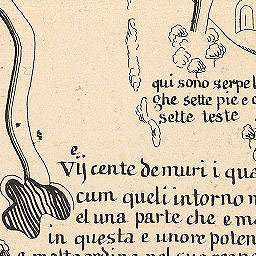 qui sono serpe
che sette pie e c
sette teste
e
Vij cente de muri i qua
cum queli intorno
el una parte che e ma
in questa e unore poten